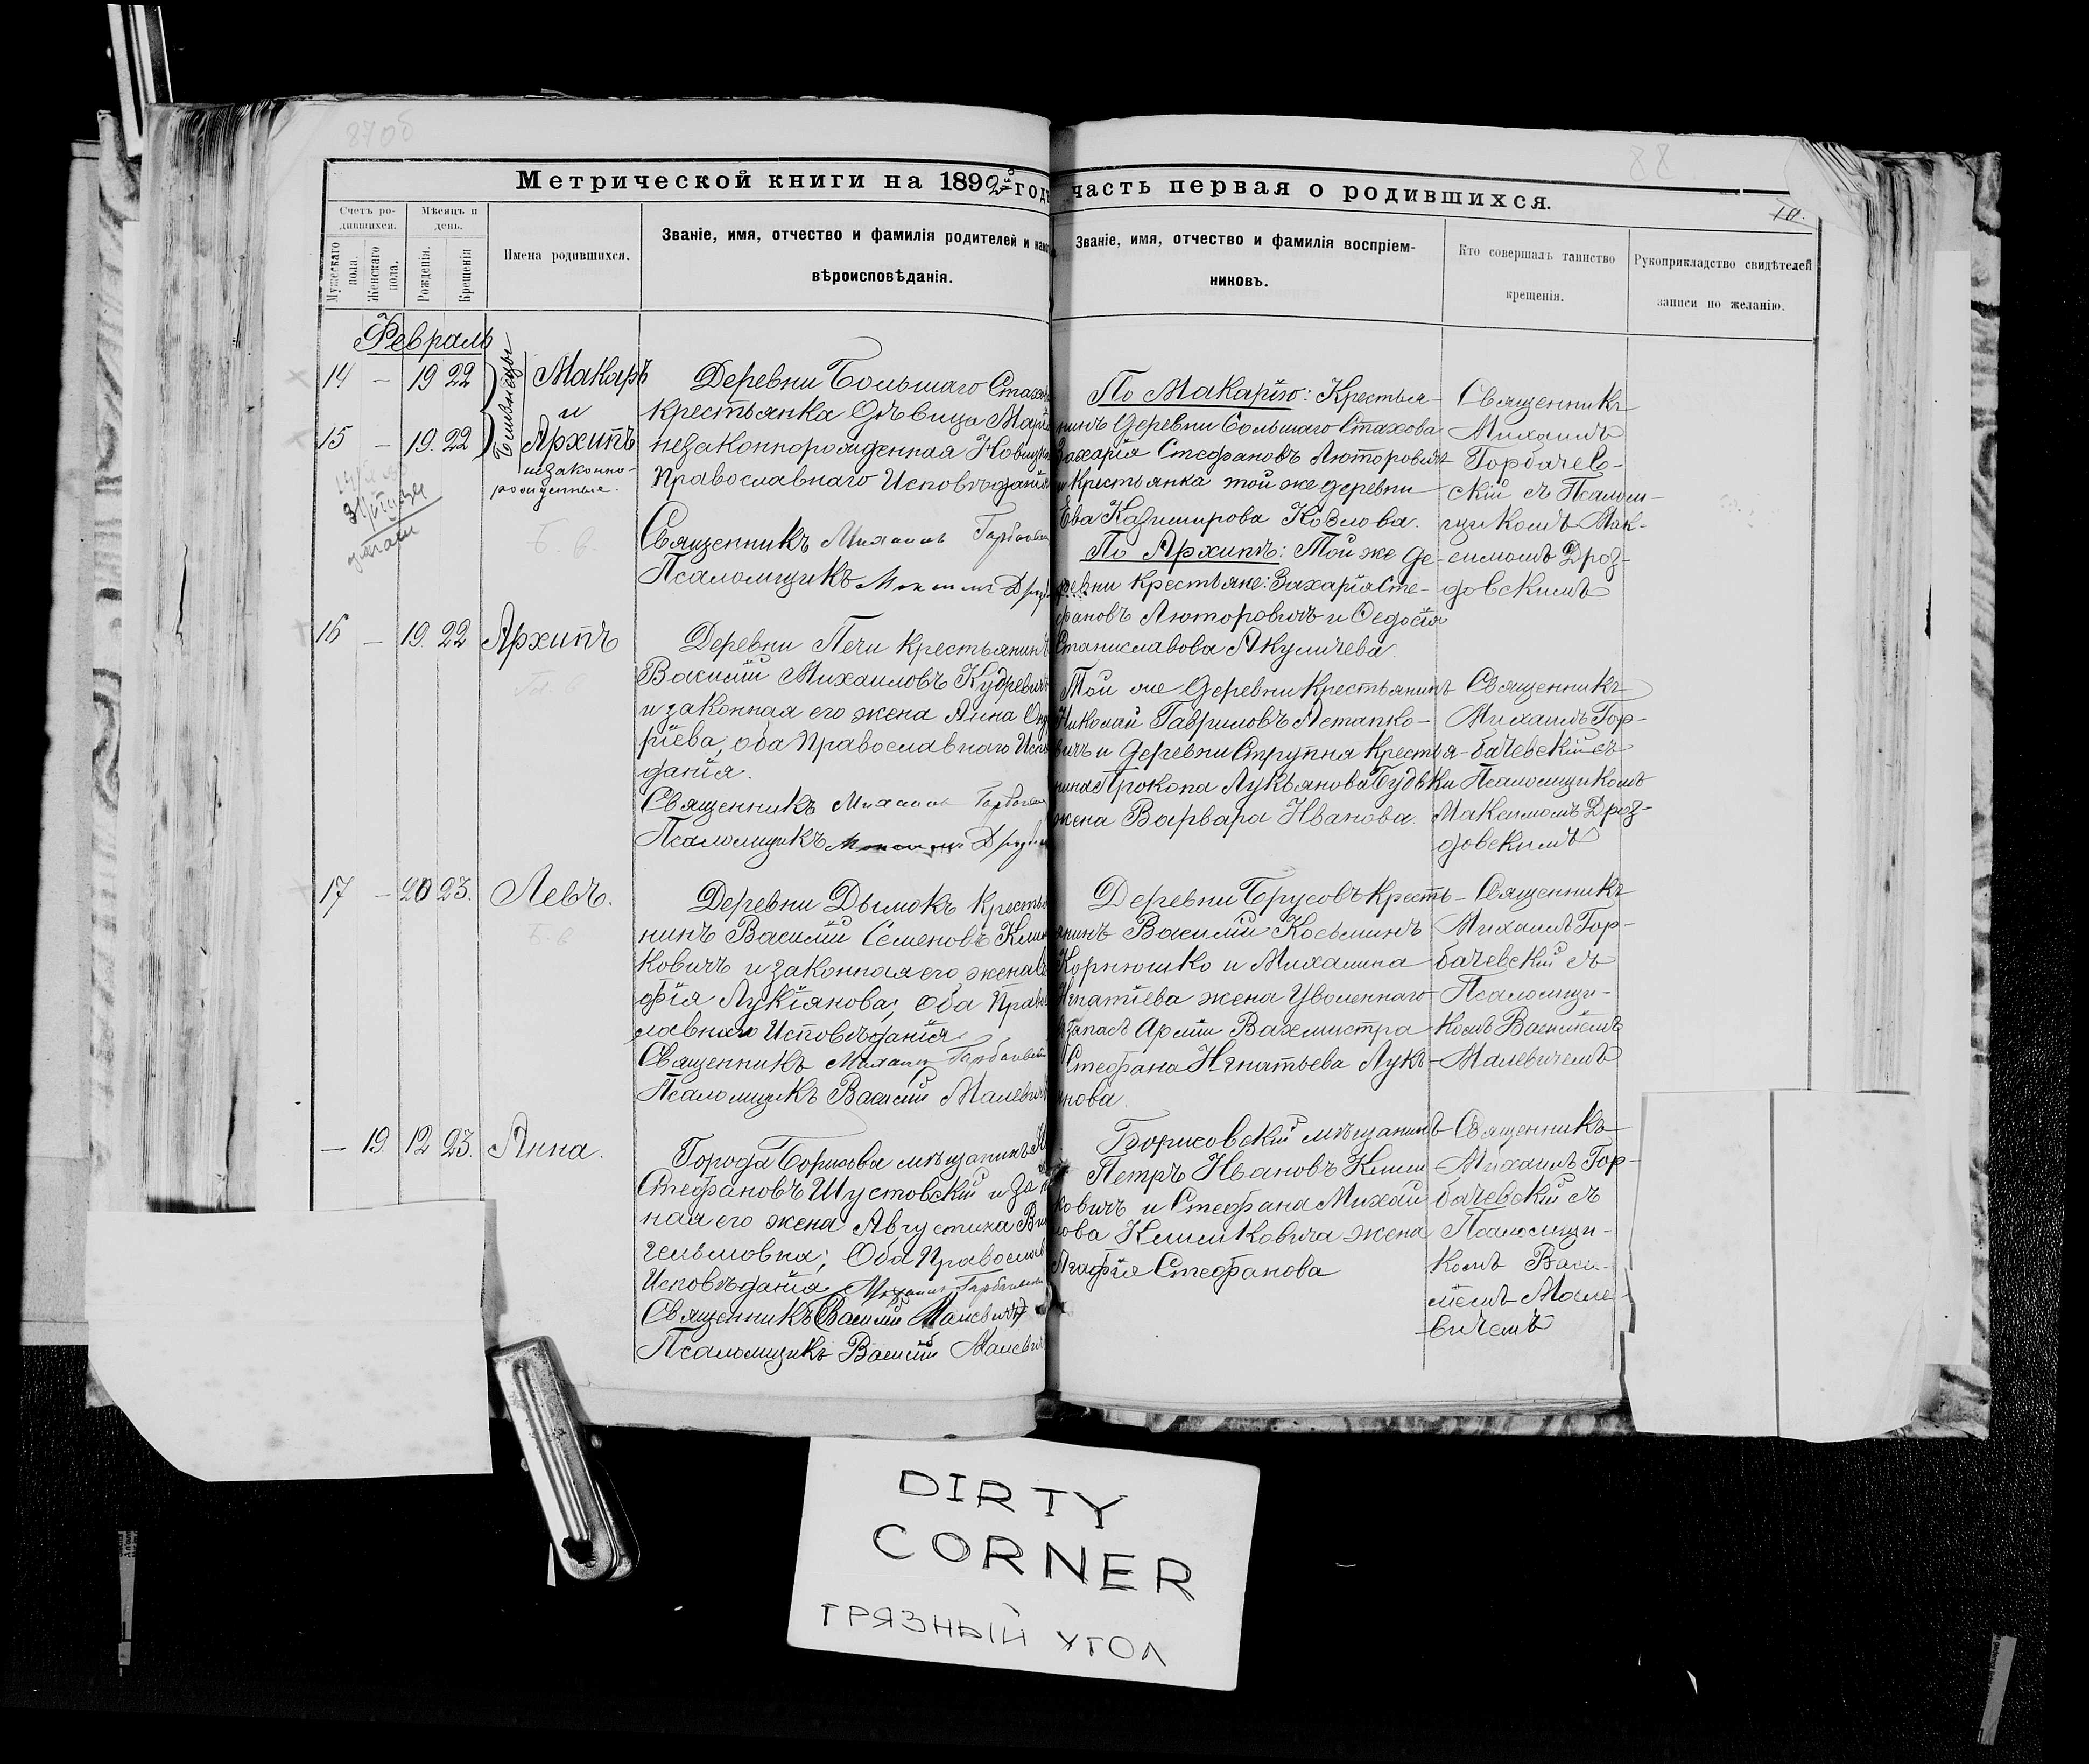 87об
88
Метрической книги на 1892 годъ часть первая о родившихся.
10.
Счетъ родившихся.
Мужескаго пола.
Женскаго пола.
Мѣсяцъ и день.
Рожденія.
Крещенія
Имена родившихся.
Званіе, имя, отчество и фамилія родителей и
вѣроисповѣданія.
Званіе, имя, отчество и фамилія воспріем-
никовъ.
Кто совершалъ таинство
крещенія.
Рукоприкладство свидѣтелей
записи по желанію.
Февраль
14 — 19 22
Близнецы
Макаръ
и
15 — 19. 22
Архипъ
незаконно-
рожденные.
Деревни Большаго
крестьянка дѣвица
незаконнорожденная
Православнаго Исповѣданія
Священникъ Михаилъ
Псаломщикъ
По Макарію: Крестья-
нинъ деревни Большаго Стахова
Захарія Стефановъ Люторовичъ
и крестьянка той же деревни
Ева Казимирова Козлова.
По Архипѣ: Той же де-
ревни крестьяне: Захарія Сте-
фановъ Люторовичъ и Ѳедосія
Станиславова Акуличева.
Священникъ
Михаилъ
Горбачев-
скій съ Псалом-
щикомъ Мак-
симомъ Дроз-
довскимъ
16 — 19. 22 Архипъ
Деревни Печи крестьянинъ
Василій Михаиловъ Кудревичъ
и законная его жена Анна
ріева, оба Православнаго
данія.
Священникъ Михаилъ
Псаломщикъ
Той же деревни крестьянинъ
Николай Гавриловъ Астапко-
вичъ и деревни Струпня крестья-
нина Прокопа Лукьянова Будьки
жена Варвара Иванова.
Священникъ
Михаилъ Гор-
бачевскій съ
Псаломщикомъ
Максимомъ Дроз-
довскимъ
17 — 20 23. Левъ.
Деревни Дымокъ
нинъ Василій Семеновъ
ковичъ и законная его жена
фія Лукіянова; оба
славнаго Исповѣданія
Священникъ Михаилъ
Псаломщикъ Василій Малевичъ
Деревни Брусовъ кресть-
янинъ Василій Косьминъ
Корнюшко и Михалина
Игнатіева жена уволеннаго
въ запасъ Арміи Вахмистра
Стефана Игнатьева Лукь-
янова.
Священникъ
Михаилъ Гор-
бачевскій съ
Псаломщи-
комъ Василіемъ
Малевичемъ
— 19. 12 23. Анна.
Города Борисова мѣщанинъ
Стефановъ Шустовскій и
ная его жена Августина
гельмовна; оба
Исповѣданія
Священникъ Василій Малевичъ
Псаломщикъ Василій
Борисовскій мѣщанинъ
Петръ Ивановъ Клим-
ковичъ и Стефана Михай-
лова Климковича жена
Агафія Стефанова
Священникъ
Михаилъ Гор-
бачевскій съ
Псаломщи-
комъ Васи-
ліемъ Мале-
вичемъ
DIRTY
CORNER
ГРЯЗНЫЙ УГОЛ